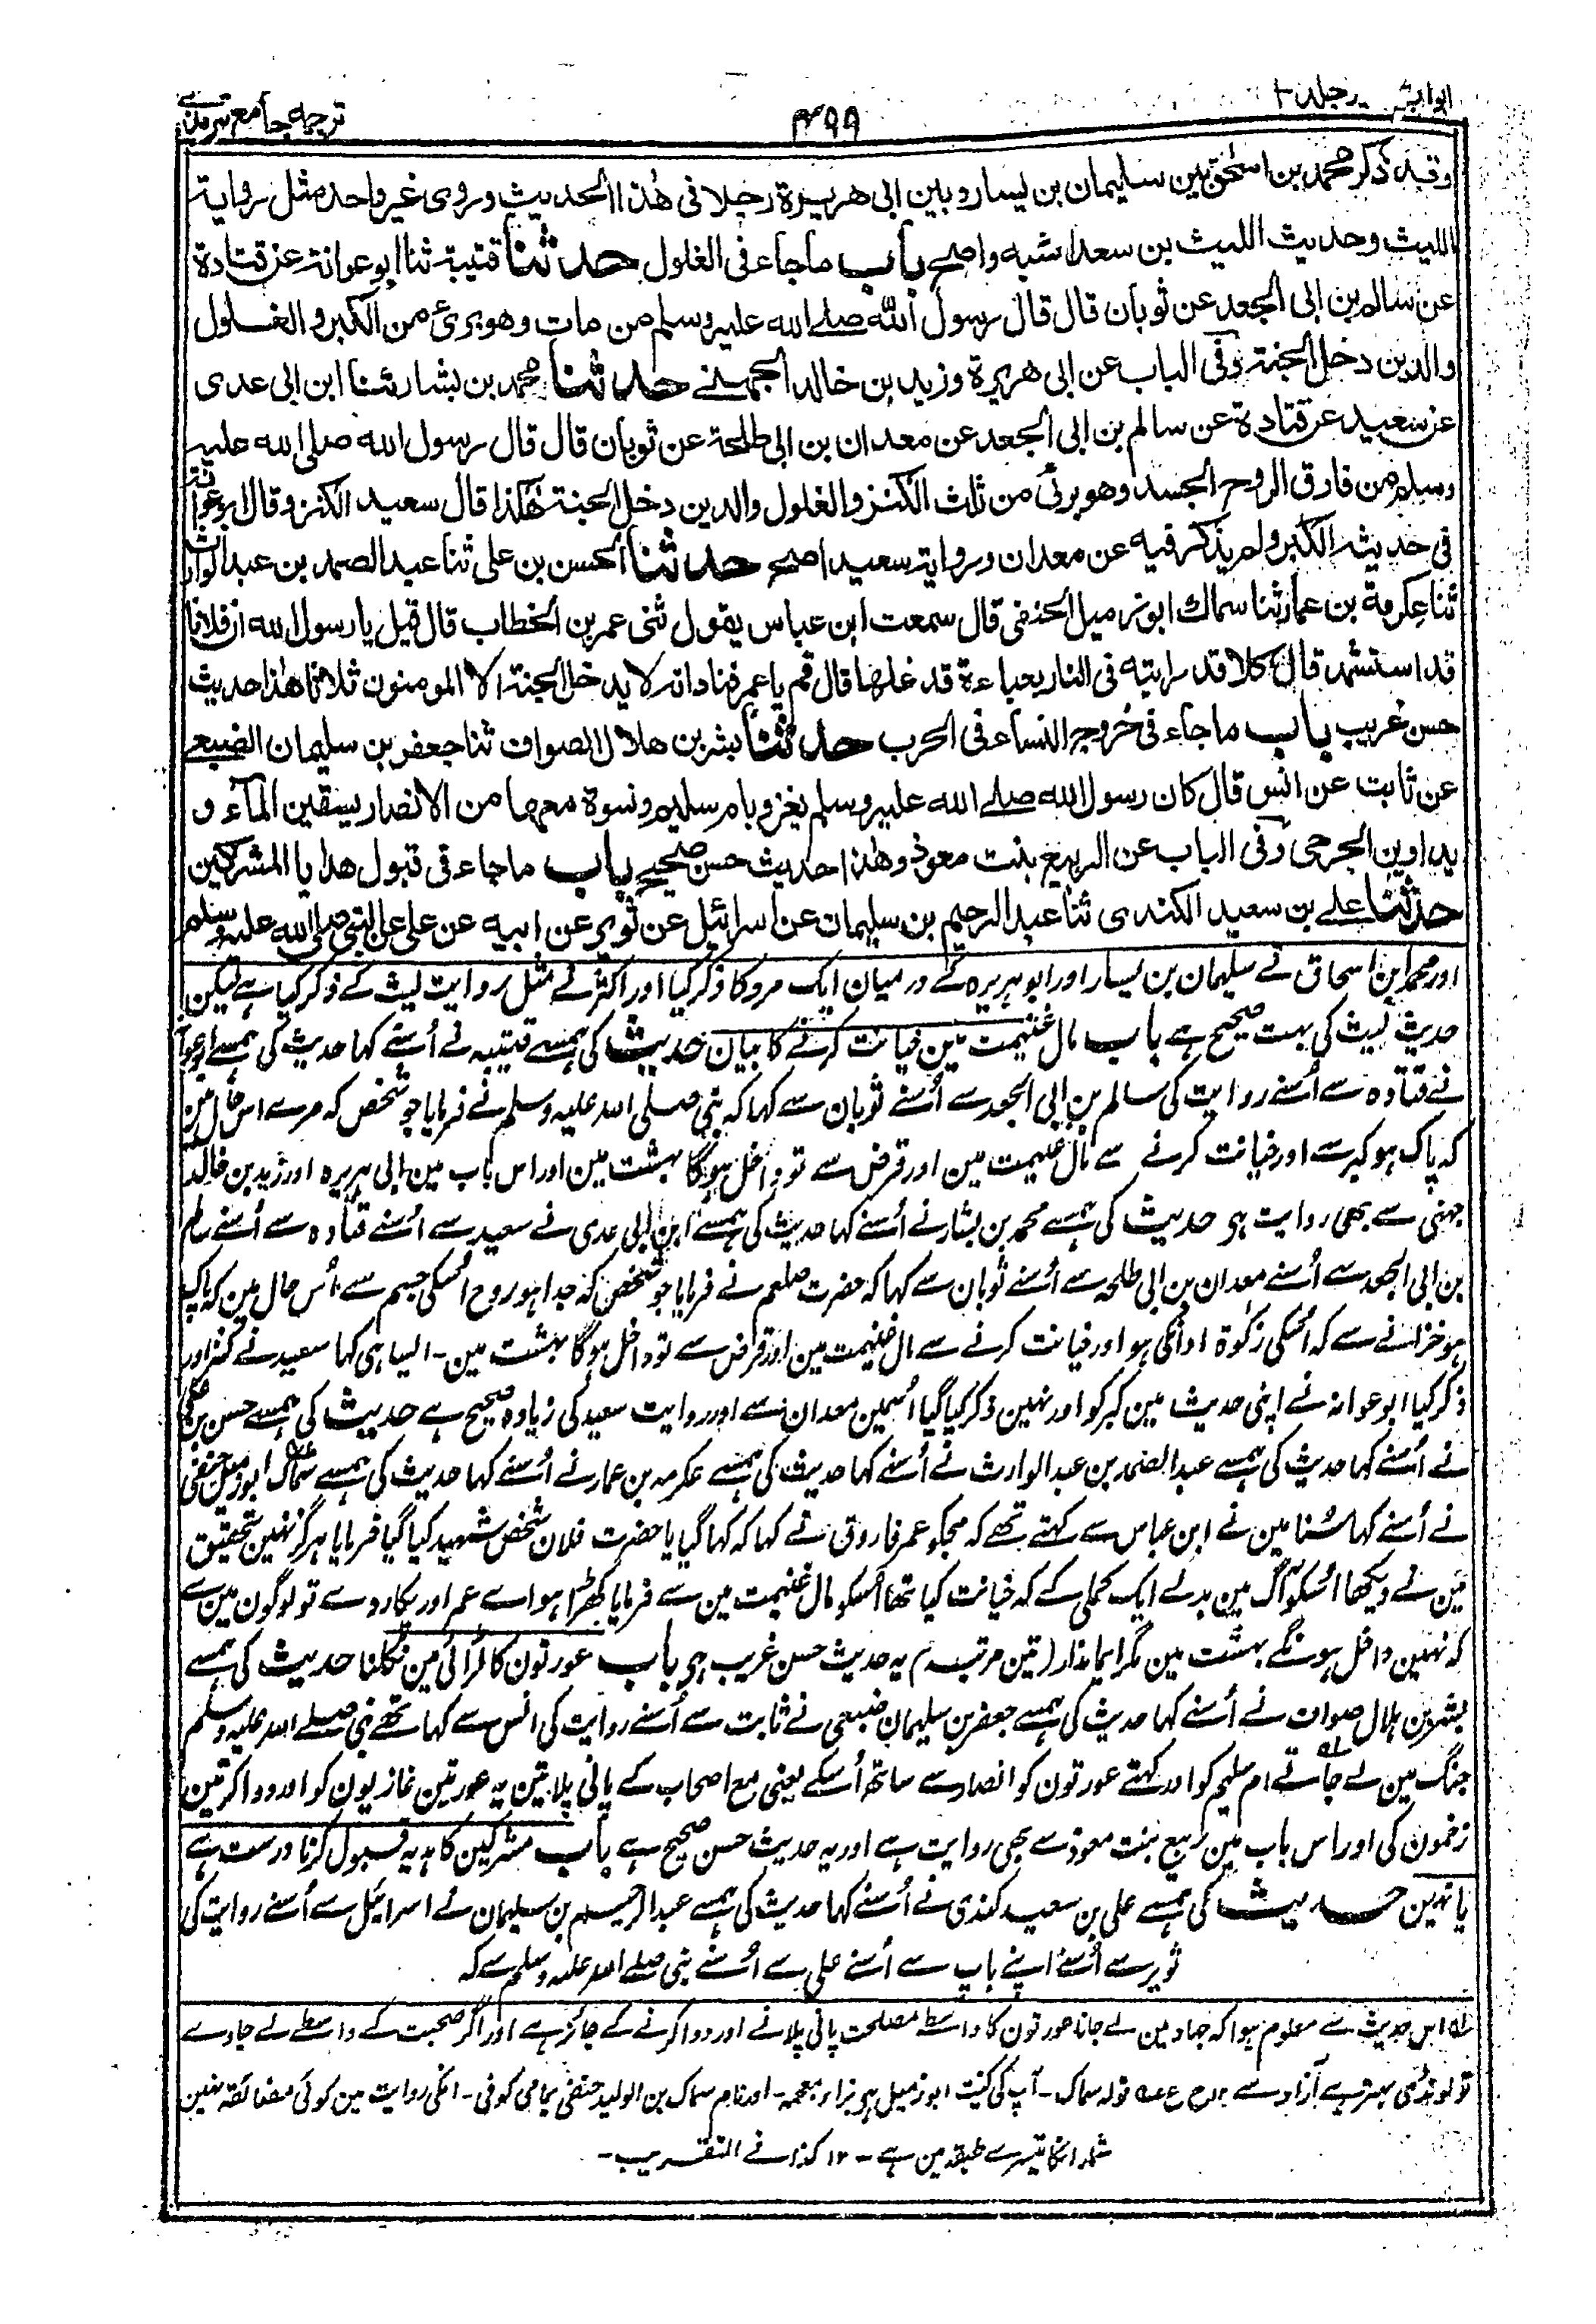 ابواب السیر جلد ۱
۴۹۹
ترجمہ جامع ترمذی
وقد ذكر محمد بن اسحٰق بین سلیمان بن یسار وبین ابی هریرة رجلا فی هٰذا الحدیث وروی غیر واحد مثل روایة
اللیث وحدیث اللیث بن سعد اشبه واصح باب ماجاء فی الغلول حدثنا قتیبة ثنا ابو عوانة عن قتادة
عن سالم بن ابی الجعد عن ثوبان قال قال رسول الله صلے الله علیہ وسلم من مات وهو بریٔ من الکبر والغلول
والدین دخل الجنة وفی الباب عن ابی هریرة وزید بن خالد الجهنے حدثنا محمد بن بشار ثنا ابن ابی عدی
عن سعید عن قتادة عن سالم بن ابی الجعد عن معدان بن ابی طلحة عن ثوبان قال قال رسول الله صلی الله علیہ
وسلم من فارق الروح الجسد وهو بریٔ من ثلٰث الکنز والغلول والدین دخل الجنة هٰکذا قال سعید الکنز وقال ابو عوانة
فی حدیثه الکبر ولم یذکر فیه عن معدان وروایة سعید اصح حدثنا الحسن بن علی ثنا عبد الصمد بن عبد الوارث
ثنا عکرمة بن عمار ثنا سماك ابو زمیل الحنفی قال سمعت ابن عباس یقول ثنی عمر بن الخطاب قال قیل یا رسول الله ان فلانا
قد استشهد قال کلا قد رایته فی النار بعباءة قد غلها قال قم یا عمر فناد انه لا ید خل الجنة الا المومنون ثلاثا هٰذا حدیث
حسن غریب باب ماجاء فی خروج النساء فی الحرب حدثنا بشر بن هلال الصواف ثنا جعفر بن سلیمان الضبعے
عن ثابت عن انس قال کان رسول الله صلے الله علیہ وسلم یغزو بام سلیم ونسوة معها من الانصار یسقین المآء و
یداوین الجرحی وفی الباب عن الربیع بنت معوذ وهٰذا حدیث حسن صحیح باب ماجاء فی قبول هدایا المشرکین
حدثنا علے بن سعید الکندی ثنا عبد الرحیم بن سلیمان عن اسرائیل عن ثویر عن ابیه عن علی عن النبی صلی الله علیہ وسلم
اور محمد ابن اسحاق نے سلیمان بن یسار اور ابو ہریرہ کے درمیان ایک مرد کا ذکر کیا اور اکثر نے مثل روایت لیث کے ذکر کیا ہے لیکن
حدیث لیث کی بہت صحیح ہے باب مال غنیمت مین خیانت کرنے کا بیان حدیث کی ہمسے قتیبہ نے اُسنے کہا حدیث کی ہمسے ابو عوانہ
نے قتادہ سے اُسنے روایت کی سالم بن ابی الجعد سے اُسنے ثوبان سے کہا کہ نبی صلی اللہ علیہ وسلم نے فرمایا جو شخص کہ مرے اس حال مین
کہ پاک ہو کبر سے اور خیانت کرنے سے مال غنیمت مین اور قرض سے تو داخل ہوگا بہشت مین اور اس باب مین ابی ہریرہ اور زید بن خالد
جہنی سے بھی روایت ہو حدیث کی ہمسے محمد بن بشار نے اُسنے کہا حدیث کی ہمسے ابن ابی عدی نے سعید سے اُسنے قتادہ سے اُسنے سالم
بن ابی الجعد سے اُسنے معدان بن ابی طلحہ سے اُسنے ثوبان سے کہا کہ حضرت صلعم نے فرمایا جو شخص کہ جدا ہو روح اُسکی جسم سے اُس حال مین کہ پاک
ہو خزانے سے کہ اُسکی زکوٰة ادا نکی ہو اور خیانت کرنے سے مال غنیمت مین اور قرض سے تو داخل ہوگا بہشت مین۔ ایسا ہی کہا سعید نے کنز اور
ذکر کیا ابو عوانہ نے اپنی حدیث مین کبر کو اور نہین ذکر کیا گیا اُسمین معدان سے اور روایت سعید کی زیادہ صحیح ہے حدیث کی ہمسے حسن بن علی
نے اُسنے کہا حدیث کی ہمسے عبد الصمد بن عبد الوارث نے اُسنے کہا حدیث کی ہمسے عکرمہ بن عمار نے اُسنے کہا حدیث کی ہمسے سماک ابو زمیل حنفی
نے اُسنے کہا سُنا مین نے ابن عباس سے کہتے تھے کہ مجکو عمر فاروق نے کہا کہ کہا گیا یا حضرت فلان شخص شہید کیا گیا فرمایا ہرگز نہین تحقیق
مین نے دیکھا اُسکو آگ مین بدلے ایک کملی کے کہ خیانت کیا تھا اُسکو مال غنیمت مین سے فرمایا کھڑا ہو اے عمر اور پکار دے تو لوگون مین سے
کہ نہین داخل ہونگے بہشت مین مگر ایماندار (تین مرتبہ) یہ حدیث حسن غریب ہی باب عورتون کا لڑائی مین نکلنا حدیث کی ہمسے
بشر بن ہلال صواف نے اُسنے کہا حدیث کی ہمسے جعفر بن سلیمان ضبعی نے ثابت سے اُسنے روایت کی انس سے کہا تھے نبی صلے اللہ علیہ وسلم
جنگ مین لے جاتے ام سلیم کو اور کہتے عورتون کو انصار سے ساتھ اُسکے یعنی مع اصحاب کے پانی پلاتین یہ عورتین غازیون کو اور دوا کرتین
زخمون کی اور اس باب مین ربیع بنت معوذ سے بھی روایت ہے اور یہ حدیث حسن صحیح ہے باب مشرکین کا ہدیہ قبول کرنا درست ہے
یا نہین حدیث کی ہمسے علی بن سعید کندی نے اُسنے کہا حدیث کی ہمسے عبد الرحیم بن سلیمان نے اسرائیل سے اُسنے روایت کی
ثویر سے اُسنے اپنے باپ سے اُسنے علی سے اُسنے نبی صلے اللہ علیہ وسلم سے کہ
لہ اس حدیث سے معلوم ہوا کہ جہاد مین لے جانا عورتون کا واسطے مصلحت پانی پلانے اور دوا کرنے کے جائز ہے اور اگر صحبت کے واسطے لے جاوے
تو لونڈی بہتر ہے آزاد سے ۱۲ ع عہ قولہ سماک۔ آپ کی کنیت ابو زمیل ہی بزاء معجمہ۔ اور نام سماک بن الولید حنفی یمامی کوفی۔ انکی روایت مین کوئی مضائقہ نہین
شمار انکا تیسرے طبقہ مین ہے۔ ۱۲ کذا فے التقریب۔